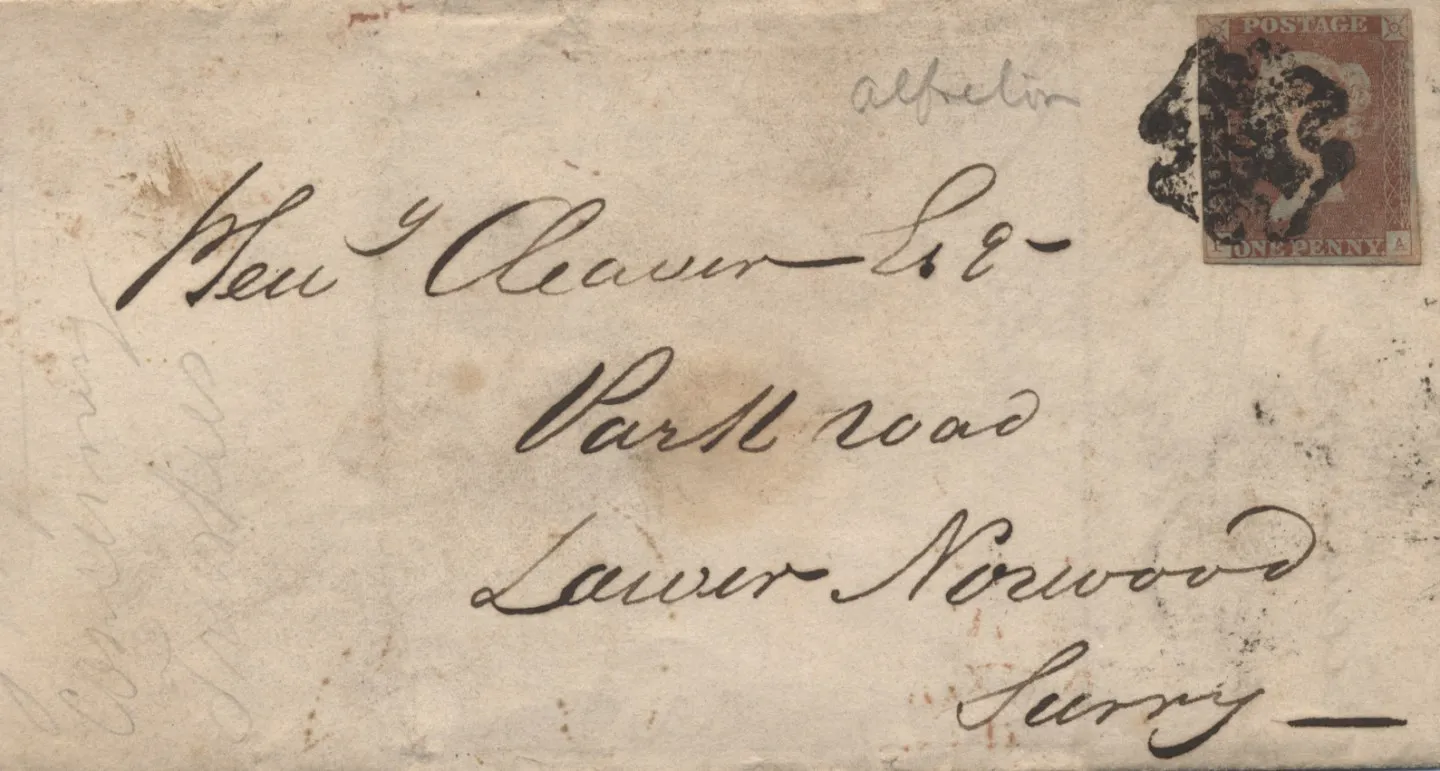 POSTAGE
alfreton
Henʸ Cleaver Esq
Park road
Lower Norwood
Surry
ONE PENNY A